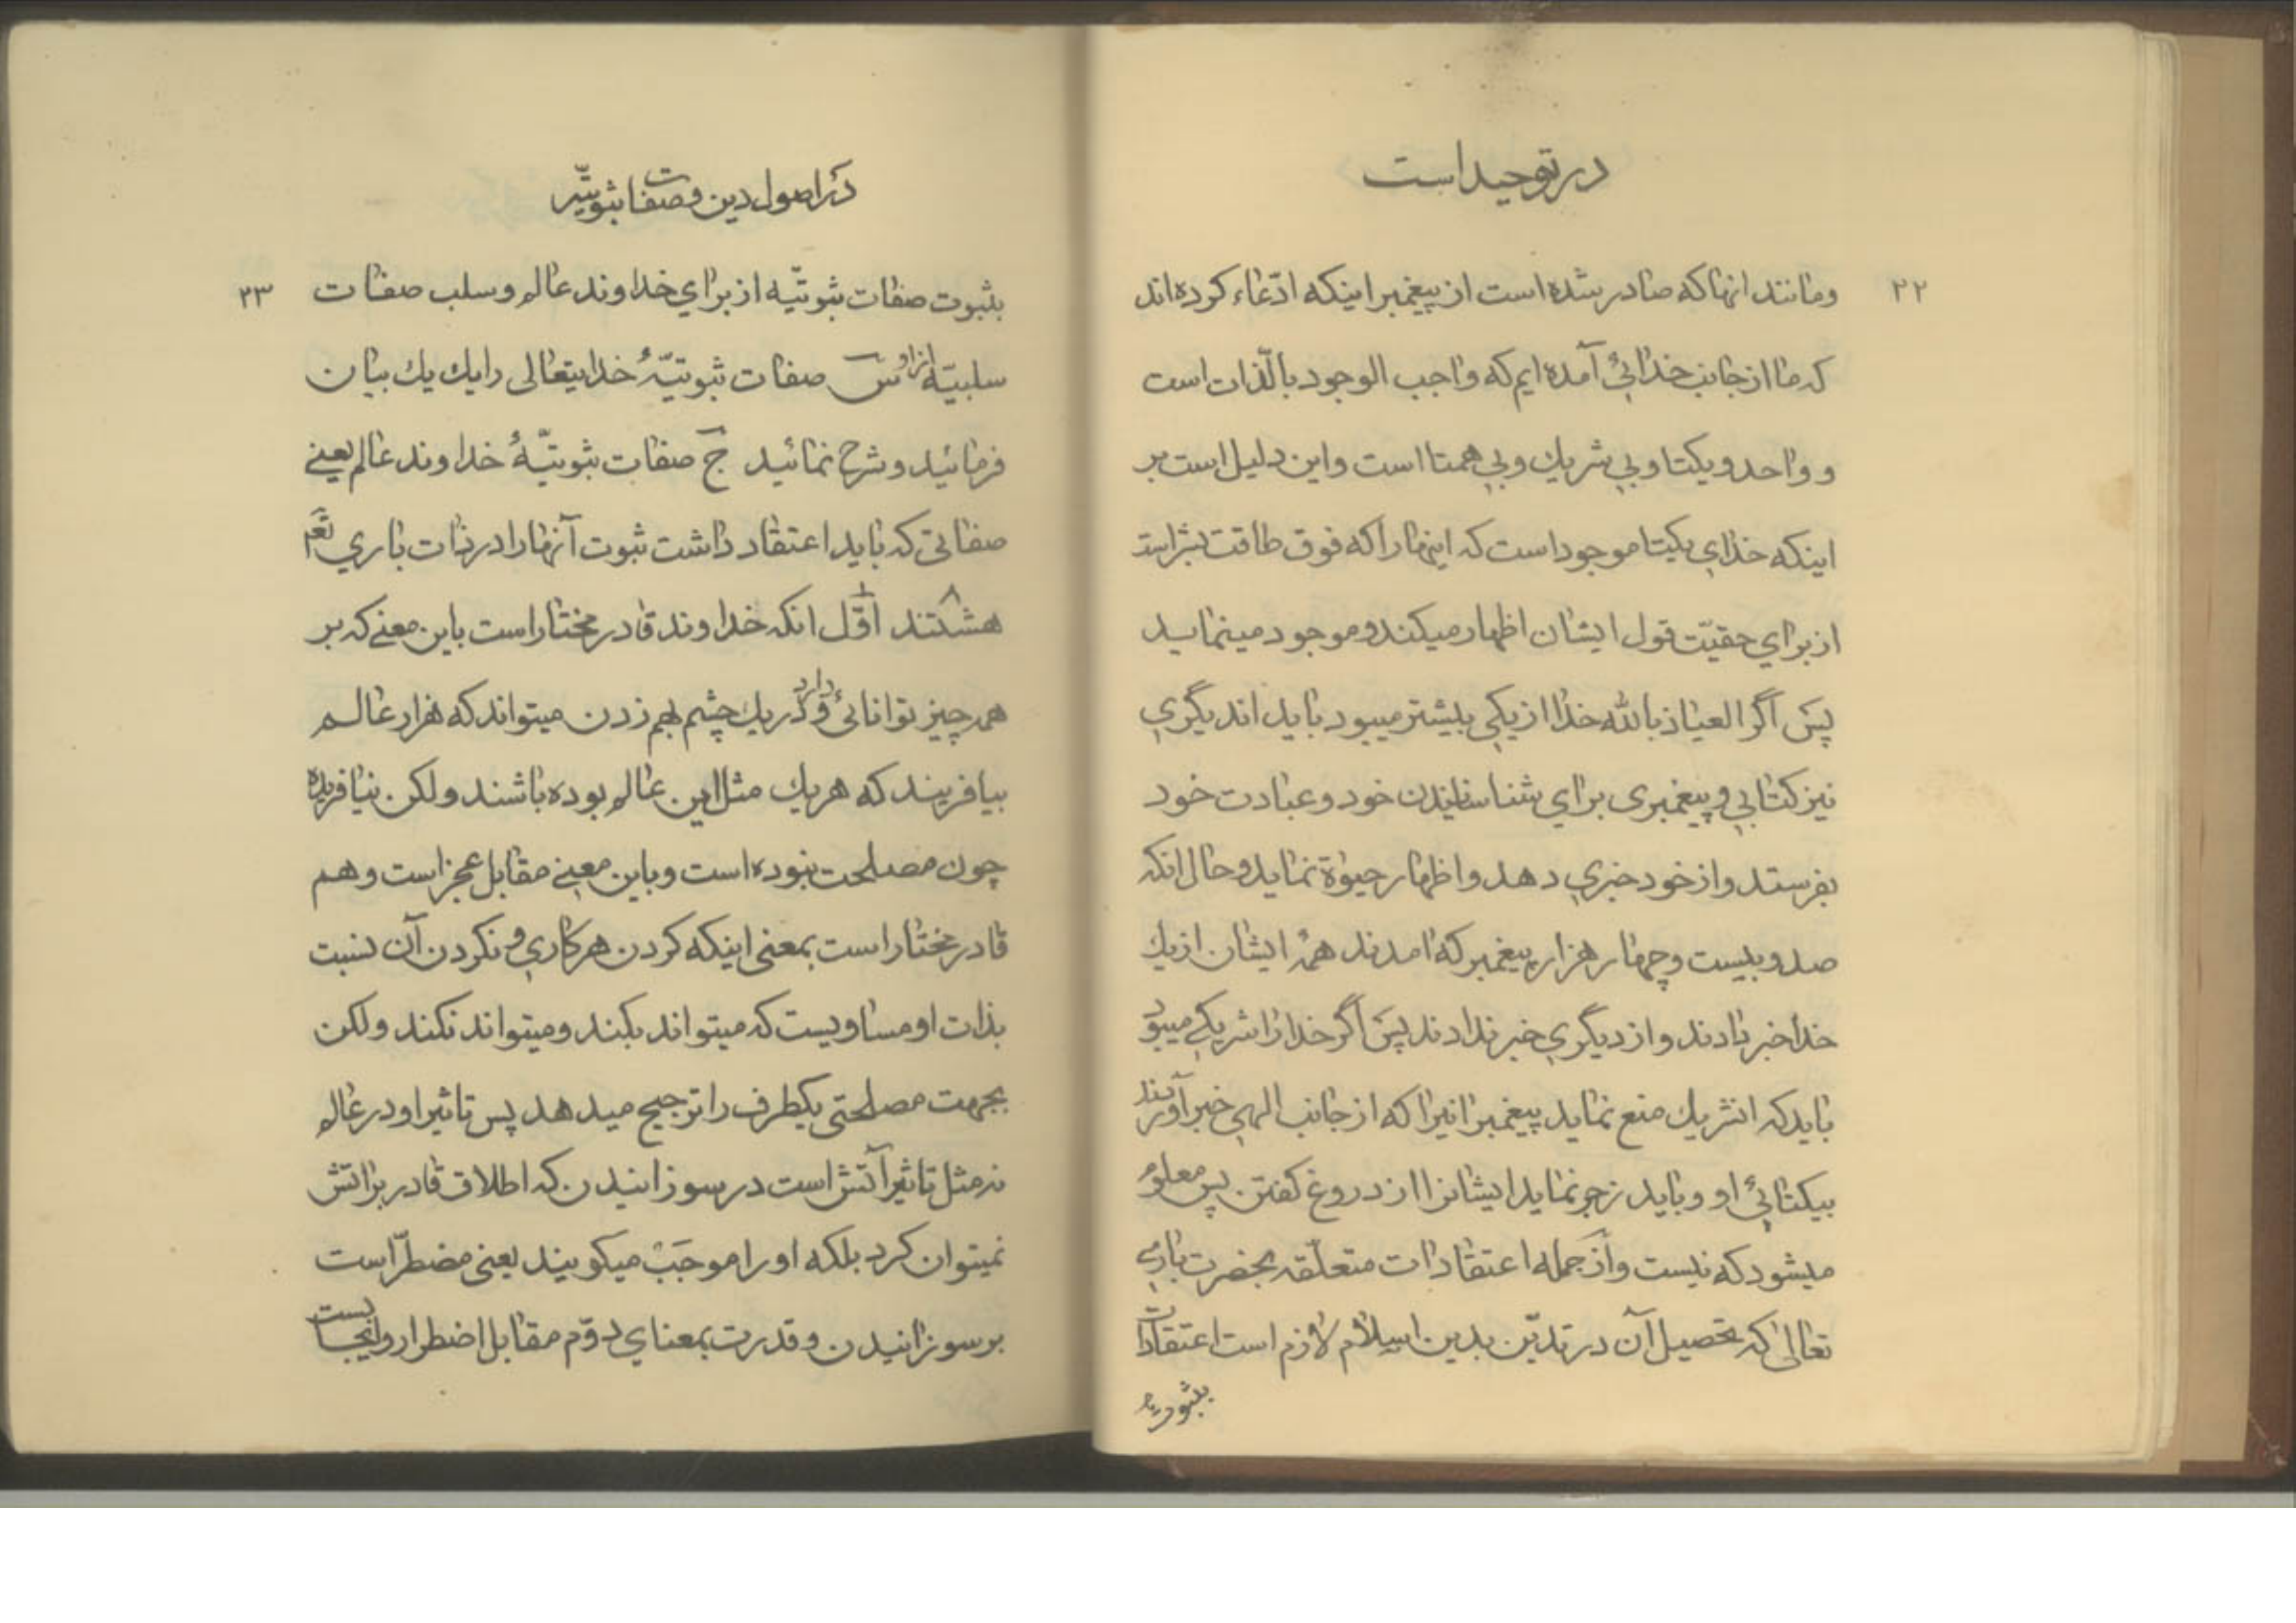 در توحید است
۲۲
و مانند انها که صادر شده است از پیغمبر اینکه ادّعاء کرده‌اند
که ما از جانب خدائی آمده ایم که واجب الوجود بالّذات است
و واحد و یکتا و بی شریك و بی همتا است و این دلیل است بر
اینکه خدای یکتا موجود است که اینها را که فوق طاقت بشر است
از برای حقیّت قول ایشان اظهار میکند و موجود مینماید
پس اگر العیاذ بالله خدا از یکی بیشتر میبود باید اندیگری
نیز کتابی و پیغمبری برای شناسانیدن خود و عبادت خود
بفرستد و از خود خبری دهد و اظهار حیوة نماید و حال انکه
صد و بیست و چهار هزار پیغمبر که امدند همهٔ ایشان از یك
خدا خبر دادند و از دیگری خبر ندادند پس اگر خدا را شریکی میبود
باید که انشریك منع نماید پیغمبرانیرا که از جانب الهی خبر آوردند
بیکتائی او و باید زجر نماید ایشانرا از دروغ گفتن پس معلوم
میشود که نیست و از جمله اعتقادات متعلّقه بحضرت باری
تعالی که تحصیل آن در تدیّن بدین اسلام لازم است اعتقادات
بثبوت
در اصول دین و صفات ثبوتیّه
۲۳
بثبوت صفات ثبوتیّه از برای خداوند عالم و سلب صفات
سلبیّه از او س صفات ثبوتیّهٔ خدایتعالی را یك یك بیان
فرمائید و شرح نمائید ج صفات ثبوتیّهٔ خداوند عالم یعنی
صفاتی که باید اعتقاد داشت ثبوت آنها را در ذات باری تعم
هشتند ۸ اوّل ۱ انکه خداوند قادر مختار است باین معنی که بر
همه چیز توانائی دارد و در یك چشم بهم زدن میتواند که هزار عالم
بیافریند که هر یك مثل این عالم بوده باشند و لکن نیافریده
چون مصلحت نبوده است و باین معنی مقابل عجز است و هم
قادر مختار است بمعنی اینکه کردن هر کاری و نکردن آن نسبت
بذات او مساویست که میتواند بکند و میتواند نکند و لکن
بجهت مصلحتی یکطرف را ترجیح میدهد پس تاثیر او در عالم
نه مثل تاثیر آتش است در سوزانیدن که اطلاق قادر بر اتش
نمیتوان کرد بلکه او را موجَبْ میگویند یعنی مضطرّ است
بر سوزانیدن و قدرت بمعنای دوّم مقابل اضطرار و ایجابست